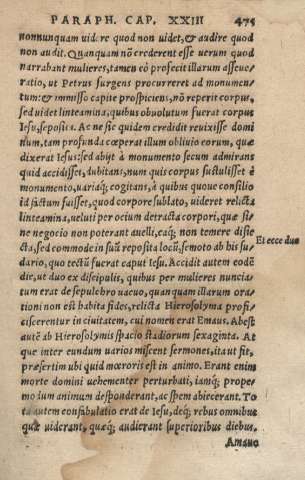 PARAPH. CAP. XXIII 475
nonnunquam uidere quod non uidet, & audire quod
non audit. Quanquam nō crederent esse uerum quod
narrabant mulieres, tamen eò profecit illarum asseue-
ratio, ut Petrus surgens procurreret ad monumen-
tum: & immisso capite prospiciens, nō reperit corpus,
sed uidet linteamina, quibus obuolutum fuerat corpus
Iesu, seposita. Ac ne sic quidem credidit reuixisse domi
num, tam profunda cœperat illum obliuio eorum, quæ
dixerat Iesus: sed abijt à monumento secum admirans
quid accidisset, dubitans, num quis corpus sustulisset è
monumento, uariaq́; cogitans, à quibus quoue consilio
id factum fuisset, quod corpore sublato, uideret relicta
linteamina, ueluti per ocium detracta corpori, quæ si-
ne negocio non poterant auelli, eaq́; non temere disie
cta, sed commode in suū reposita locū, semoto ab his su-
dario, quo tectū fuerat caput Iesu. Accidit autem eodē
Et ecce duo
die, ut duo ex discipulis, quibus per mulieres nuncia-
tum erat de sepulcro uacuo, quanquam illarum ora-
tioni non est habita fides, relicta Hierosolyma profi-
ciscerentur in ciuitatem, cui nomen erat Emaus. Abest
autē ab Hierosolymis spacio stadiorum sexaginta. At
que inter eundum uarios miscent sermones, ita ut fit,
præsertim ubi quid mœroris est in animo. Erant enim
morte domini uehementer perturbati, iamq́; prope-
modum animum desponderant, ac spem abiecerant. To
ta autem confabulatio erat de Iesu, deq́; rebus omnibus
quæ uiderant, quæq́; audierant superioribus diebus.
Amauo